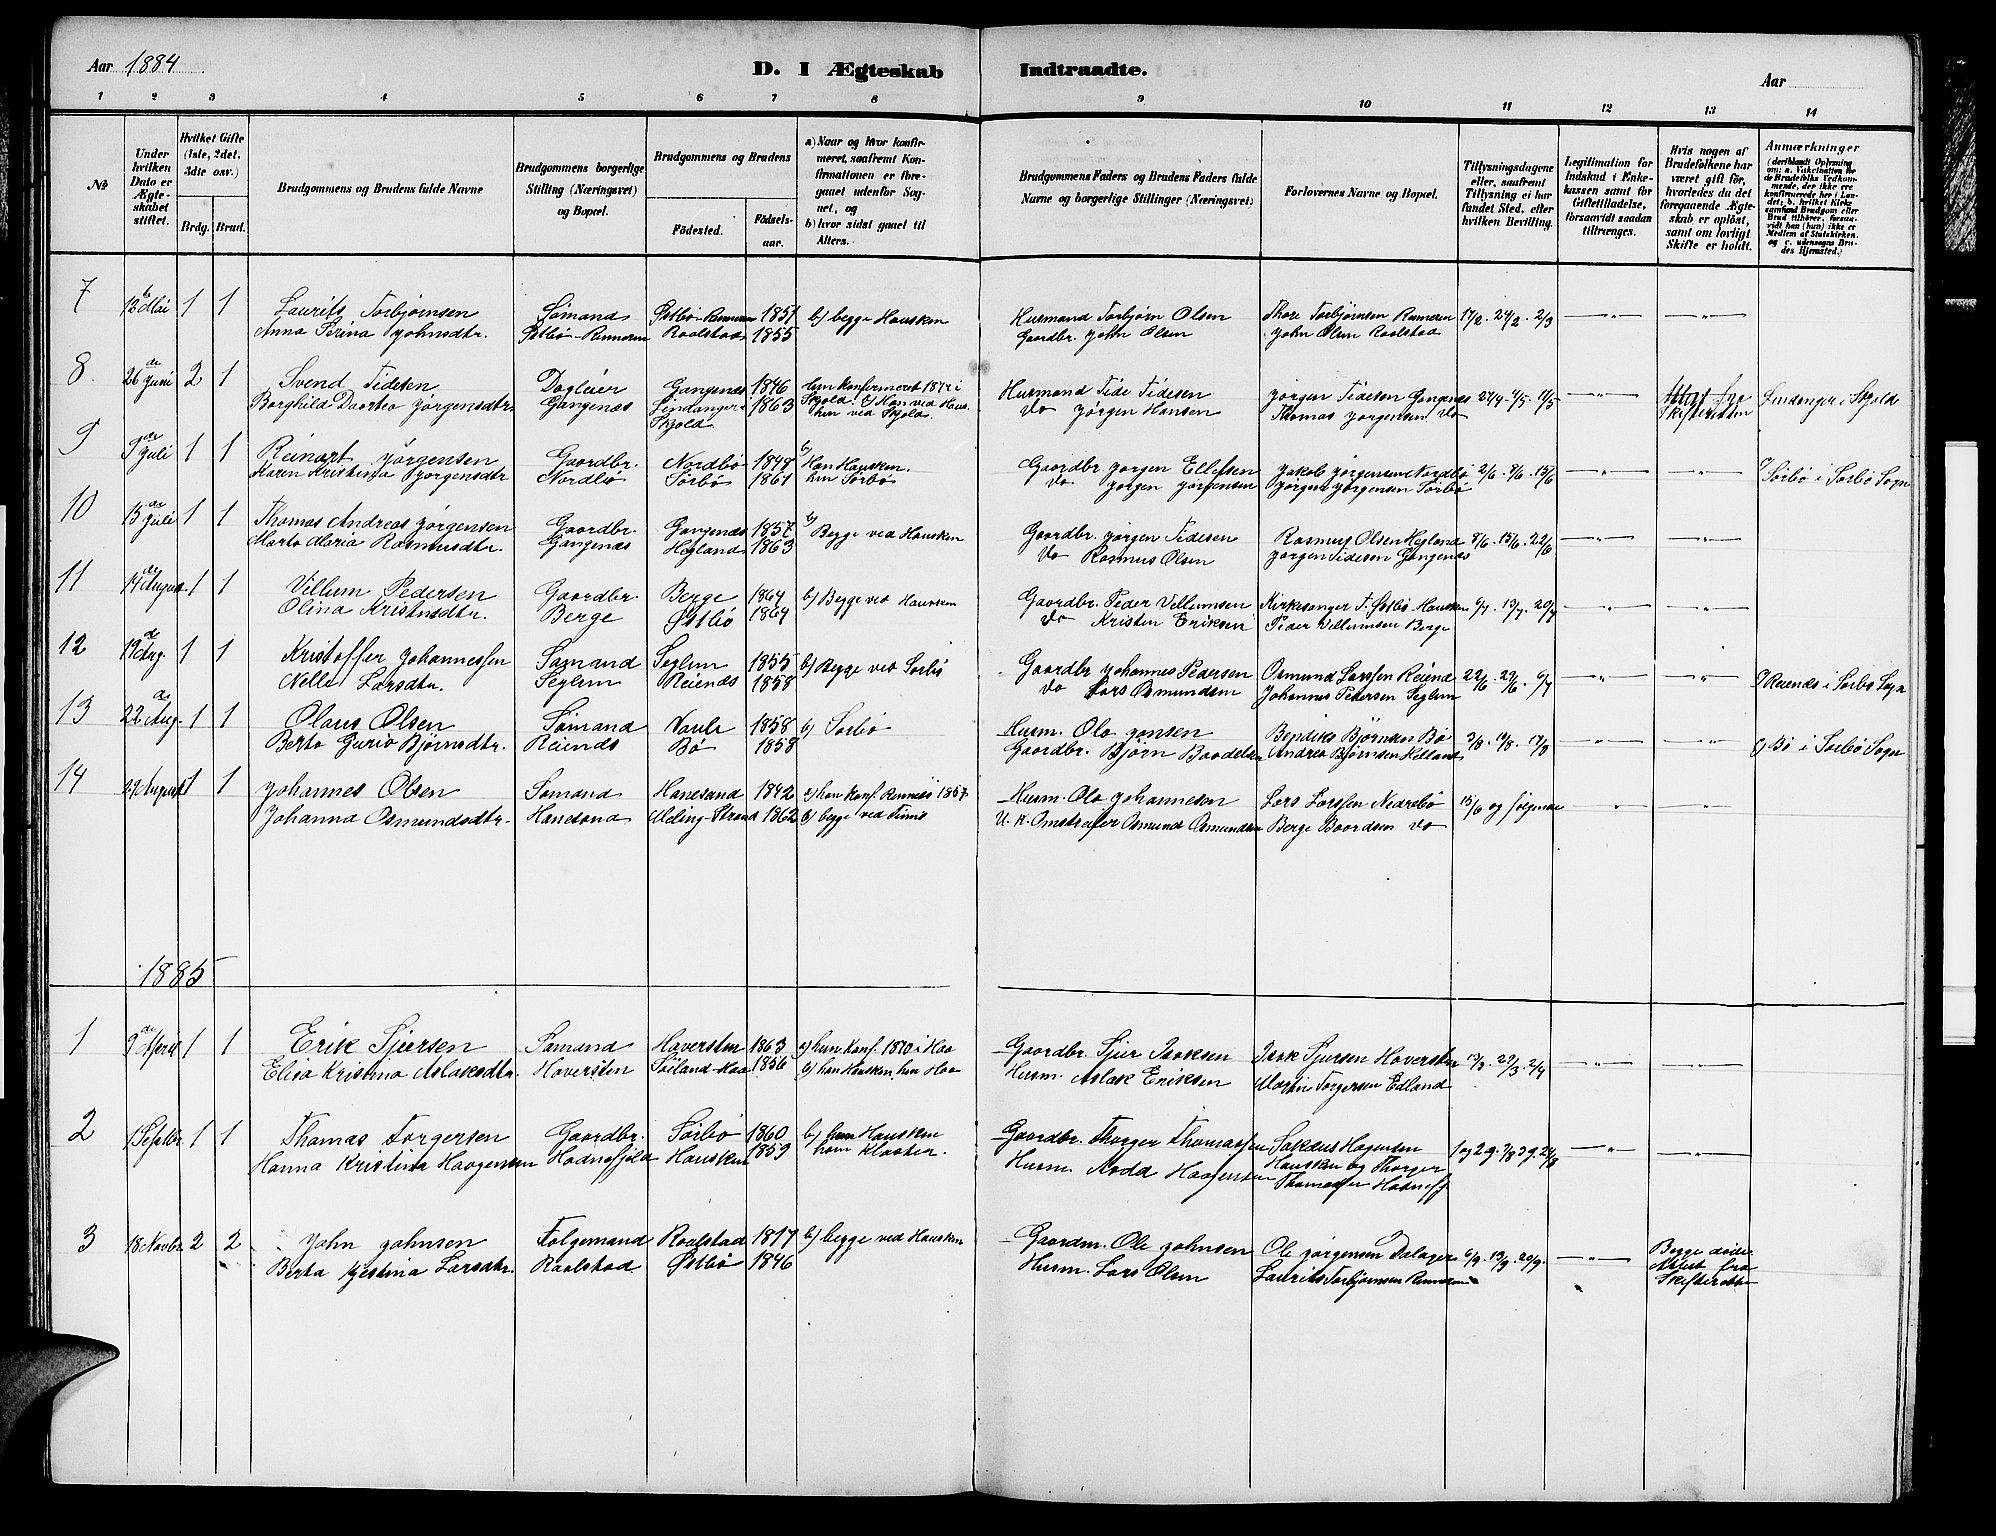 Aar 1884
D. I Ægteskab Indtraadte.
Aar
1 2 3 4 5 6 7 8 9 10 11 12 13 14
№
Under hvilken Dato er Ægteskabet stiftet.
Hvilket Gifte (1ste, 2det, 3die osv.)
Brdg. Brud.
Brudgommens og Brudens fulde Navne
Brudgommens borgerlige Stilling (Næringsvei) og Bopæl.
Brudgommens og Brudens
Fødested. Fødselsaar.
a) Naar og hvor konfirmeret, saafremt Konfirmationen er foregaaet udenfor Sognet, og
b) hvor sidst gaaet til Alters.
Brudgommens Faders og Brudens Faders fulde Navne og borgerlige Stillinger (Næringsvei)
Forlovernes Navne og Bopæl.
Tillysningsdagene eller, saafremt Tillysning ei har fundet Sted, efter hvilken Bevilling.
Legitimation for Indskud i Enkekassen samt for Giftetilladelse, forsaavidt saadan tiltrænges.
Hvis nogen af Brudefolkene har været gift før, hvorledes da det foregaaende Ægteskab er opløst, samt om lovligt Skifte er holdt.
Anmærkninger (deriblandt Oplysning om: a. Vakcination for de Brudefolks Vedkommende, der ikke ere konfirmerede her i Landet; b. hvilket Kirkesamfund Brudgom eller Brud tilhører, forsaavidt han (hun) ikke er Medlem af Statskirken, og c. udensogns Brudes Hjemsted.)
7 13 Mai 1 1 Laurits Torbjørnsen Sømand Østbø-Rennesø 1851 b) begge Hausken Husmand Torbjørn Olsen Thore Torbjørnsen Rennesø 17/2. 24/2. 2/3
Anna Serina Johnsdtr. Østbø-Rennesø Raalstad 1855 Gaardbr. John Olsen John Olsen Raalstad
8. 26 de Juni 2 1 Svend Tidesen Dagleier Gangenæs 1846 hun konfirmeret i Skjold. b) Han ved Hausken Husmand Tide Tidesen Jørgen Tidesen Gangenæs
Borghild Dorthea Jørgensdtr. Gangenæs Lindanger Skjold 1863 hun ved Skjold. do Jørgen Hansen Thomas Jørgensen do Skifteretten Lindanger i Skjold
9 9 de Juli 1 1 Reinart Jørgensen Gaardbr. Nordbø b) Han Hausken. Gaardbr. Jørgen Ellefsen Jakob Jørgensen Nordbø 2/6. 8/6. 15/6
Karen Kristina Jørgensdtr Nordbø Sørbø 1861 hun Sørbø do Jørgen Jørgensen Jørgen Jørgensen Sørbø c) Sørbø i Sørbø Sogn
10 15 de Juli 1 1 Thomas Andreas Jørgensen Gaardbr. Gangenæs 1857 b) Begge ved Hausken Gaardbr. Jørgen Tidesen Rasmus Olsen Hegland 8/6. 15/6. 22/6
Marta Maria Rasmusdtr. Gangenæs Hegland 1863 do Rasmus Olsen Jørgen Tidesen Gangenæs
11 14 de August 1 1 Villum Pedersen Gaardbr. Berge b) Begge ved Hausken Gaardbr. Peder Villumsen Kirkesanger T. Østbø Hausken 6/7. 13/7. 20/7
Olina Kristensdtr. Berge Østbø 1864 do Kristen Eriksen Peder Villumsen Berge
12 19 de Aug. 1 1 Kristoffer Johannessen Sømand Seglem 1855 b) Begge ved Sørbø Gaardbr Johannes Pedersen Osmund Larssen Reiend 22/6. 29/6. 6/7
Nelle Larsdtr. Seglem Reienæs 1858 do Lars Osmundsen Johannes Pedersen Seglem c) Reienæs i Sørbø Sogn
13 22 de Aug. 1 1 Olaus Olsen Sømand Vaula 1858 b) Sørbø Husm. Ole Jonsen Bendiks Bjørnsen Bø 3/8. 10/8. 17/8
Berta Guria Bjørnsdtr. Reienæs Bø 1858 Gaardbr. Bjørn Baardsen Andrea Bjørnsen Helland c) Bø i Sørbø Sogn
14 29 August 1 1 Johannes Olsen Sømand Hanesand 1842 a) han konf. Rennesø 1857 Husm. Ole Johannesen Lars Larssen Nedrebø 15/6 og følgende
Johanna Osmundsdtr. Hanesand Meling-Strand 1862 b) begge ved Finnø Osmund Osmundsen Berge Baardsen do
1885
1 9 de April 1 1 Erik Sjursen Sømand Haversten 1863 a) hun konf. 1870 i Haa Gaardbr. Sjur Isaksen Isak Sjursen Haversten
Elisa Kristina Aslaksdtr. Haversten Søiland-Haa 1856 b) han Hausken, hun Haa Husm. Aslak Eriksen Martin Torgersen Edland
2 1 Septbr. 1 1 Thomas Torgersen Gaardbr. Sørbø 1860 b) hun Hausken Gaardbr. Thorger Thomassen Sakæus Hagensen
Hanna Kristina Haagensen Hodnefjeld Hausken 1859 han Kloster. Husm. Hausken og Thorger
Thomassen Hodnefj
3 18 Novbr. 2 2 John Johnsen Følgemand Raalstad 1817 b) begge ved Hausken Gaardm. Ole Johnsen Ole Jørgensen Dalager 6/9. 13/9. 20/9. Begge døde.
Berta Kjestina Larsdtr. Raalstad Østbø 1846 Husm. Lars Olsen Laurits Torbjørnsen Rennesø Attest fra
Skifteretten